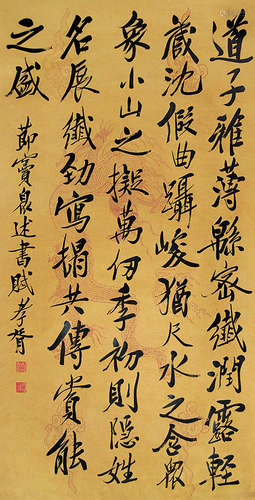 道子雅薄緜密纖潤露輕
藏沈假曲躡峻猶尺水之含眾
象小山之擬萬仞季初則隱姓
名辰纖勁寫搨共傳賞能
之盛
節竇臮述書賦 孝胥